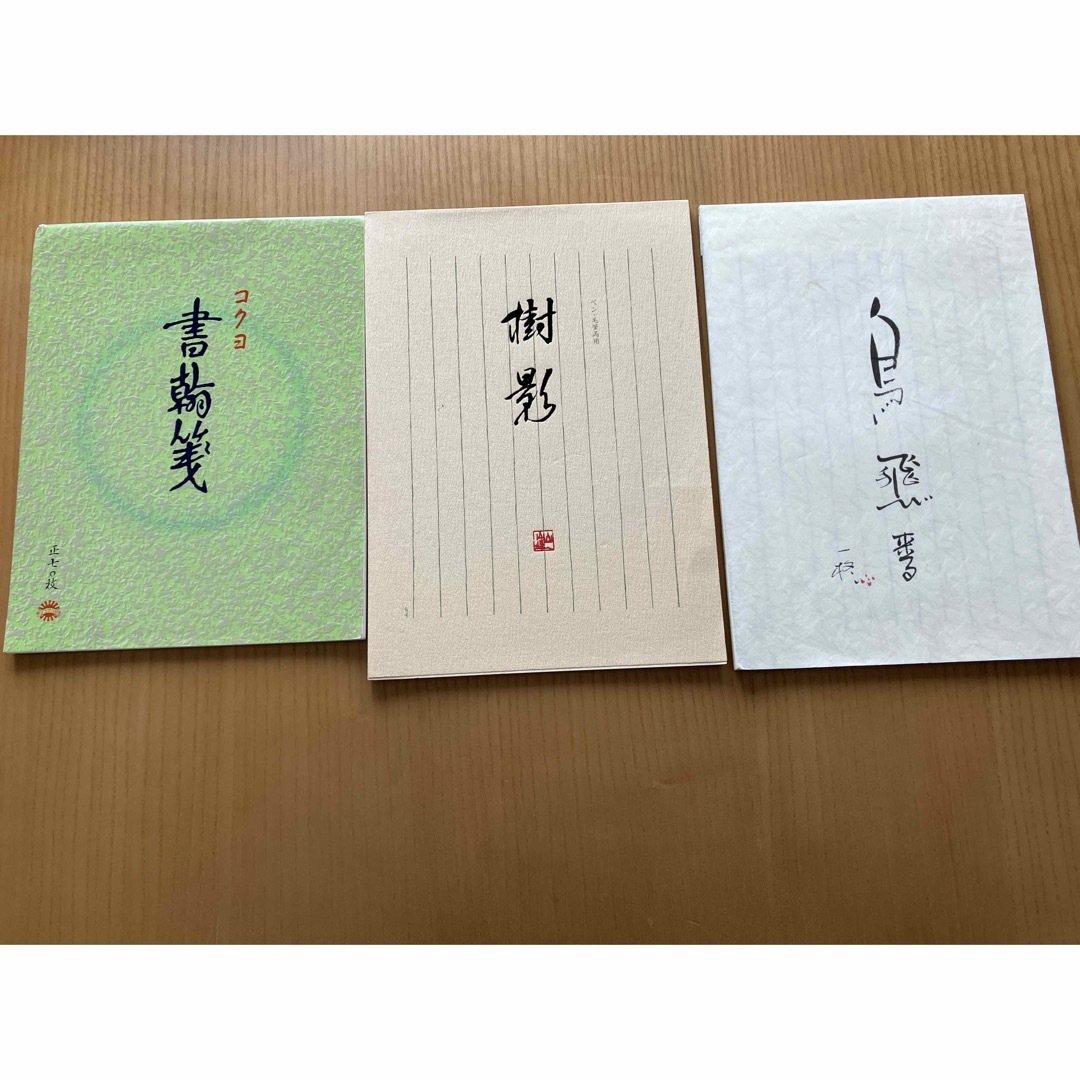 コクヨ
書翰箋
正七〇枚
ペン・毛筆両用
樹影
鳥飛